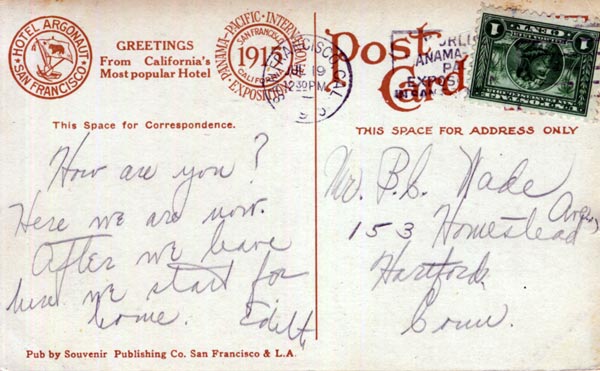 HOTEL ARGONAUT
SAN FRANCISCO
GREETINGS
From California's
Most popular Hotel
PANAMA-PACIFIC-INTERNATIONAL
EXPOSITION
SAN FRANCISCO
1915
CALIFORNIA
SAN FRANCISCO, CAL.
19
230 PM
Post
Card
PANAMA-
PA
EXPOS
IN SAN
1 CENT 1
This Space for Correspondence.
THIS SPACE FOR ADDRESS ONLY
How are you?
Here we are now.
After we leave
here we start for
home. Edith
Mr. P.C. Wade
153 Homestead
Hartford
Conn.
Pub by Souvenir Publishing Co. San Francisco & L.A.